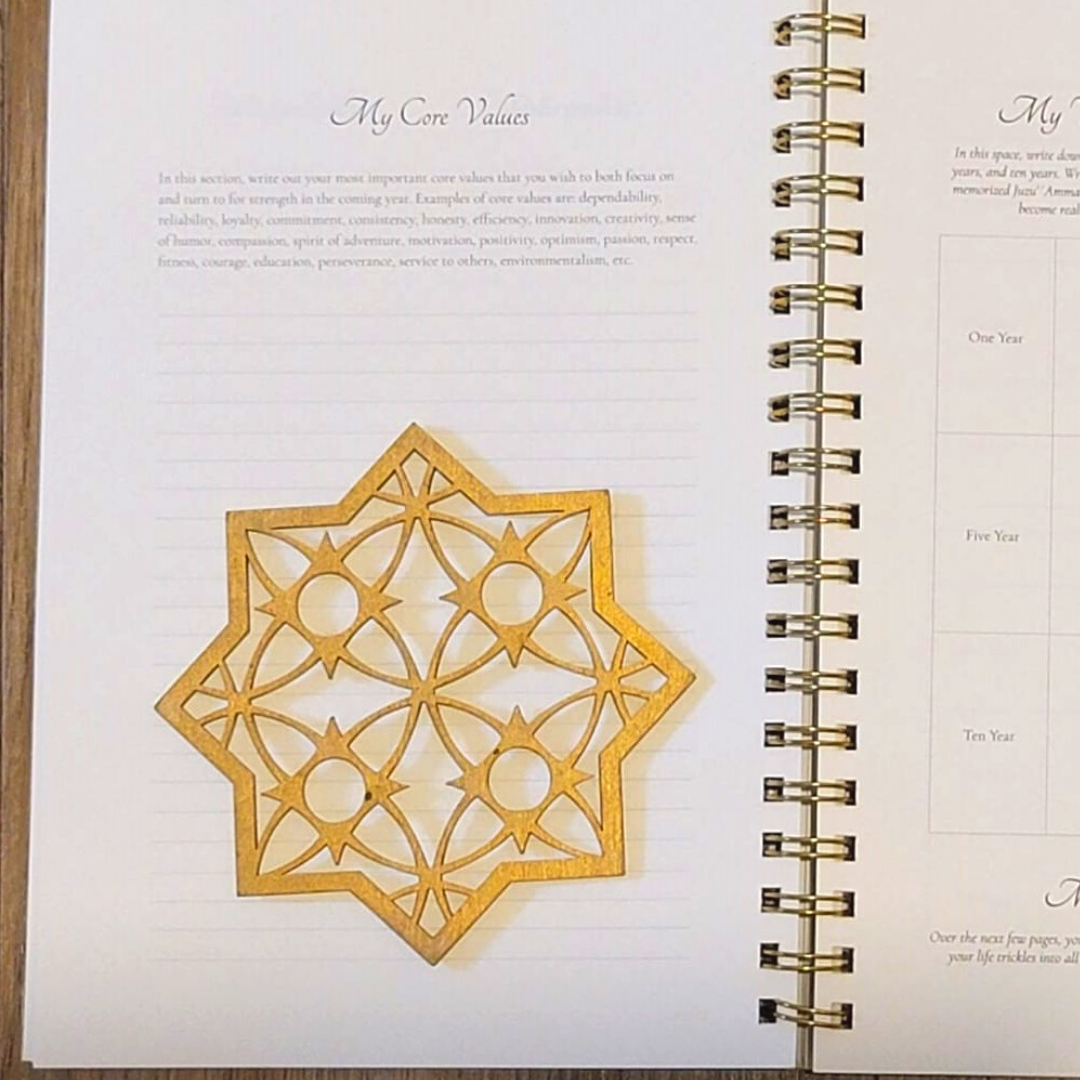 My Core Values
In this section, write out your most important core values that you wish to both focus on
and turn to for strength in the coming year. Examples of core values are: dependability,
reliability, loyalty, commitment, consistency, honesty, efficiency, innovation, creativity, sense
of humor, compassion, spirit of adventure, motivation, positivity, optimism, passion, respect,
fitness, courage, education, perseverance, service to others, environmentalism, etc.
My
In this space, write down
years, and ten years.
memorized Juzu' 'Amma
become
One Year
Five Year
Ten Year
Over the next few pages,
your life trickles into all